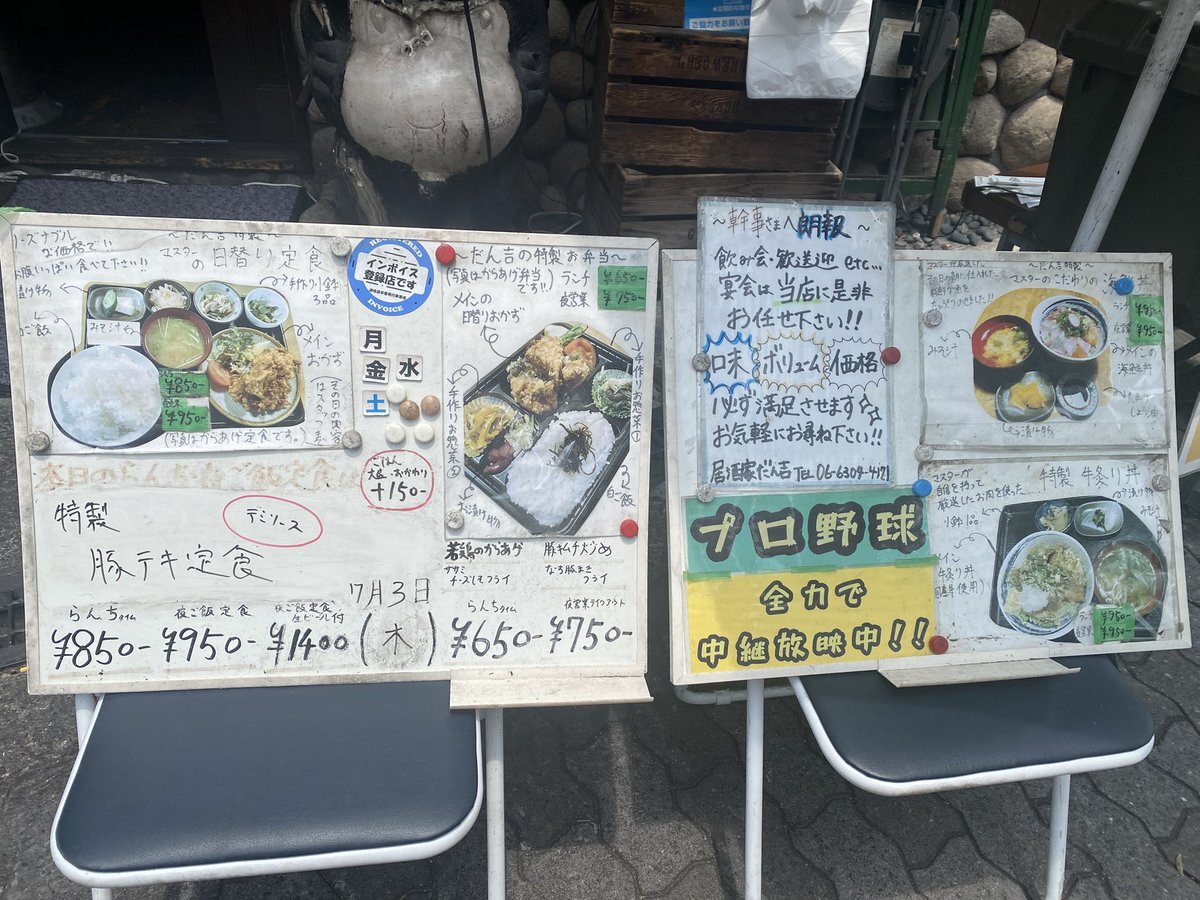 ご協力をお願い
リーズナブル
な価格で!!
お腹いっぱい食べて下さい!!
〜だん吉特製〜
マスターの日替り定食
漬け物
手作り小鉢
3品
みそ汁
ご飯
メイン
おかず
¥850-
¥950-
(写真はからあげ定食です。)
REGISTERED
インボイス
登録店です
INVOICE
月
金
水
土
ごはん
大盛・おかわり
+150-
〜だん吉の特製お弁当〜
(写真はからあげ弁当
です!!)
メインの
日替りおかず
ランチ
¥650-
夜営業
¥750-
手作りお惣菜①
手作りお惣菜②
お漬け物
白ご飯
特製
デミソース
豚テキ定食
7月3日
(木)
らんちタイム
¥850-
夜ご飯定食
¥950-
夜ご飯定食
生ビール付
¥1400
若鶏のからあげ
ササミ
チーズしそフライ
豚キムチ大づめ
なす豚まき
フライ
らんちタイム
¥650-
夜営業テイクアウト
¥750-
〜幹事さまへ朗報〜
飲み会・歓送迎 etc...
宴会は当店に是非
お任せ下さい!!
味 ボリューム 価格
必ず満足させます
お気軽にお尋ね下さい!!
居酒家だん吉 TEL 06-6304-4171
プロ野球
全力で
中継放映中!!
〜だん吉特製〜
マスターのこだわりの海鮮丼
みそ汁
¥950-
¥950-
メインの
海鮮丼
しょう油
漬け物
マスターが
自信を持って
厳選したお肉を使った....
特製 牛炙り丼
小鉢
お漬け物
みそ汁
メイン
牛炙り丼
¥950-
¥950-